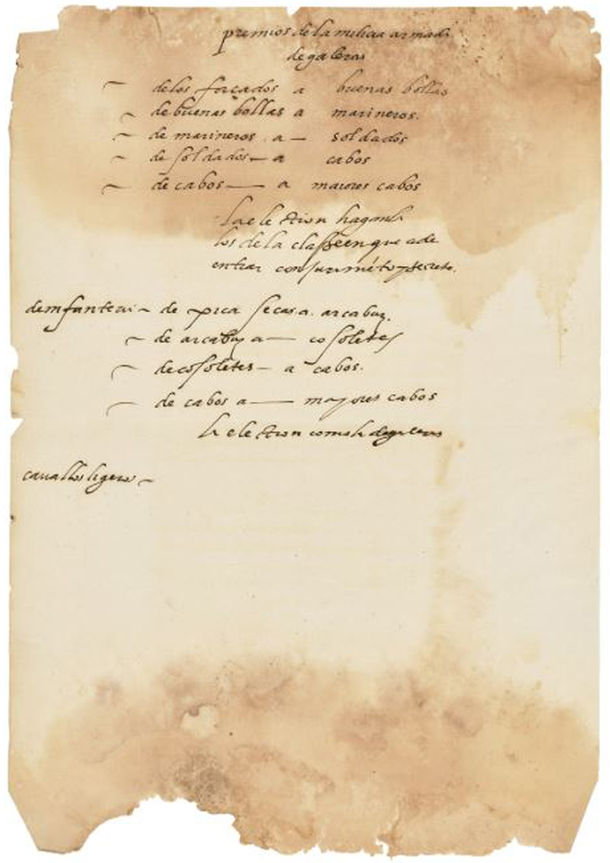 premios de la milicia armada
de galeras
~ de los forçados a buenas bollas
~ de buenas bollas a marineros.
~ de marineros a — soldados
~ de soldados — a cabos
~ de cabos — a maiores cabos
la election haganla
los de la classe en que a de
entrar con juramẽto y secreto.
de infanteria ~ de pica seca a arcabuz.
~ de arcabuz a — cosoletes
~ de cosoletes — a cabos.
~ de cabos a — mayores cabos
la election como la de galeras
cauallos ligeros ~